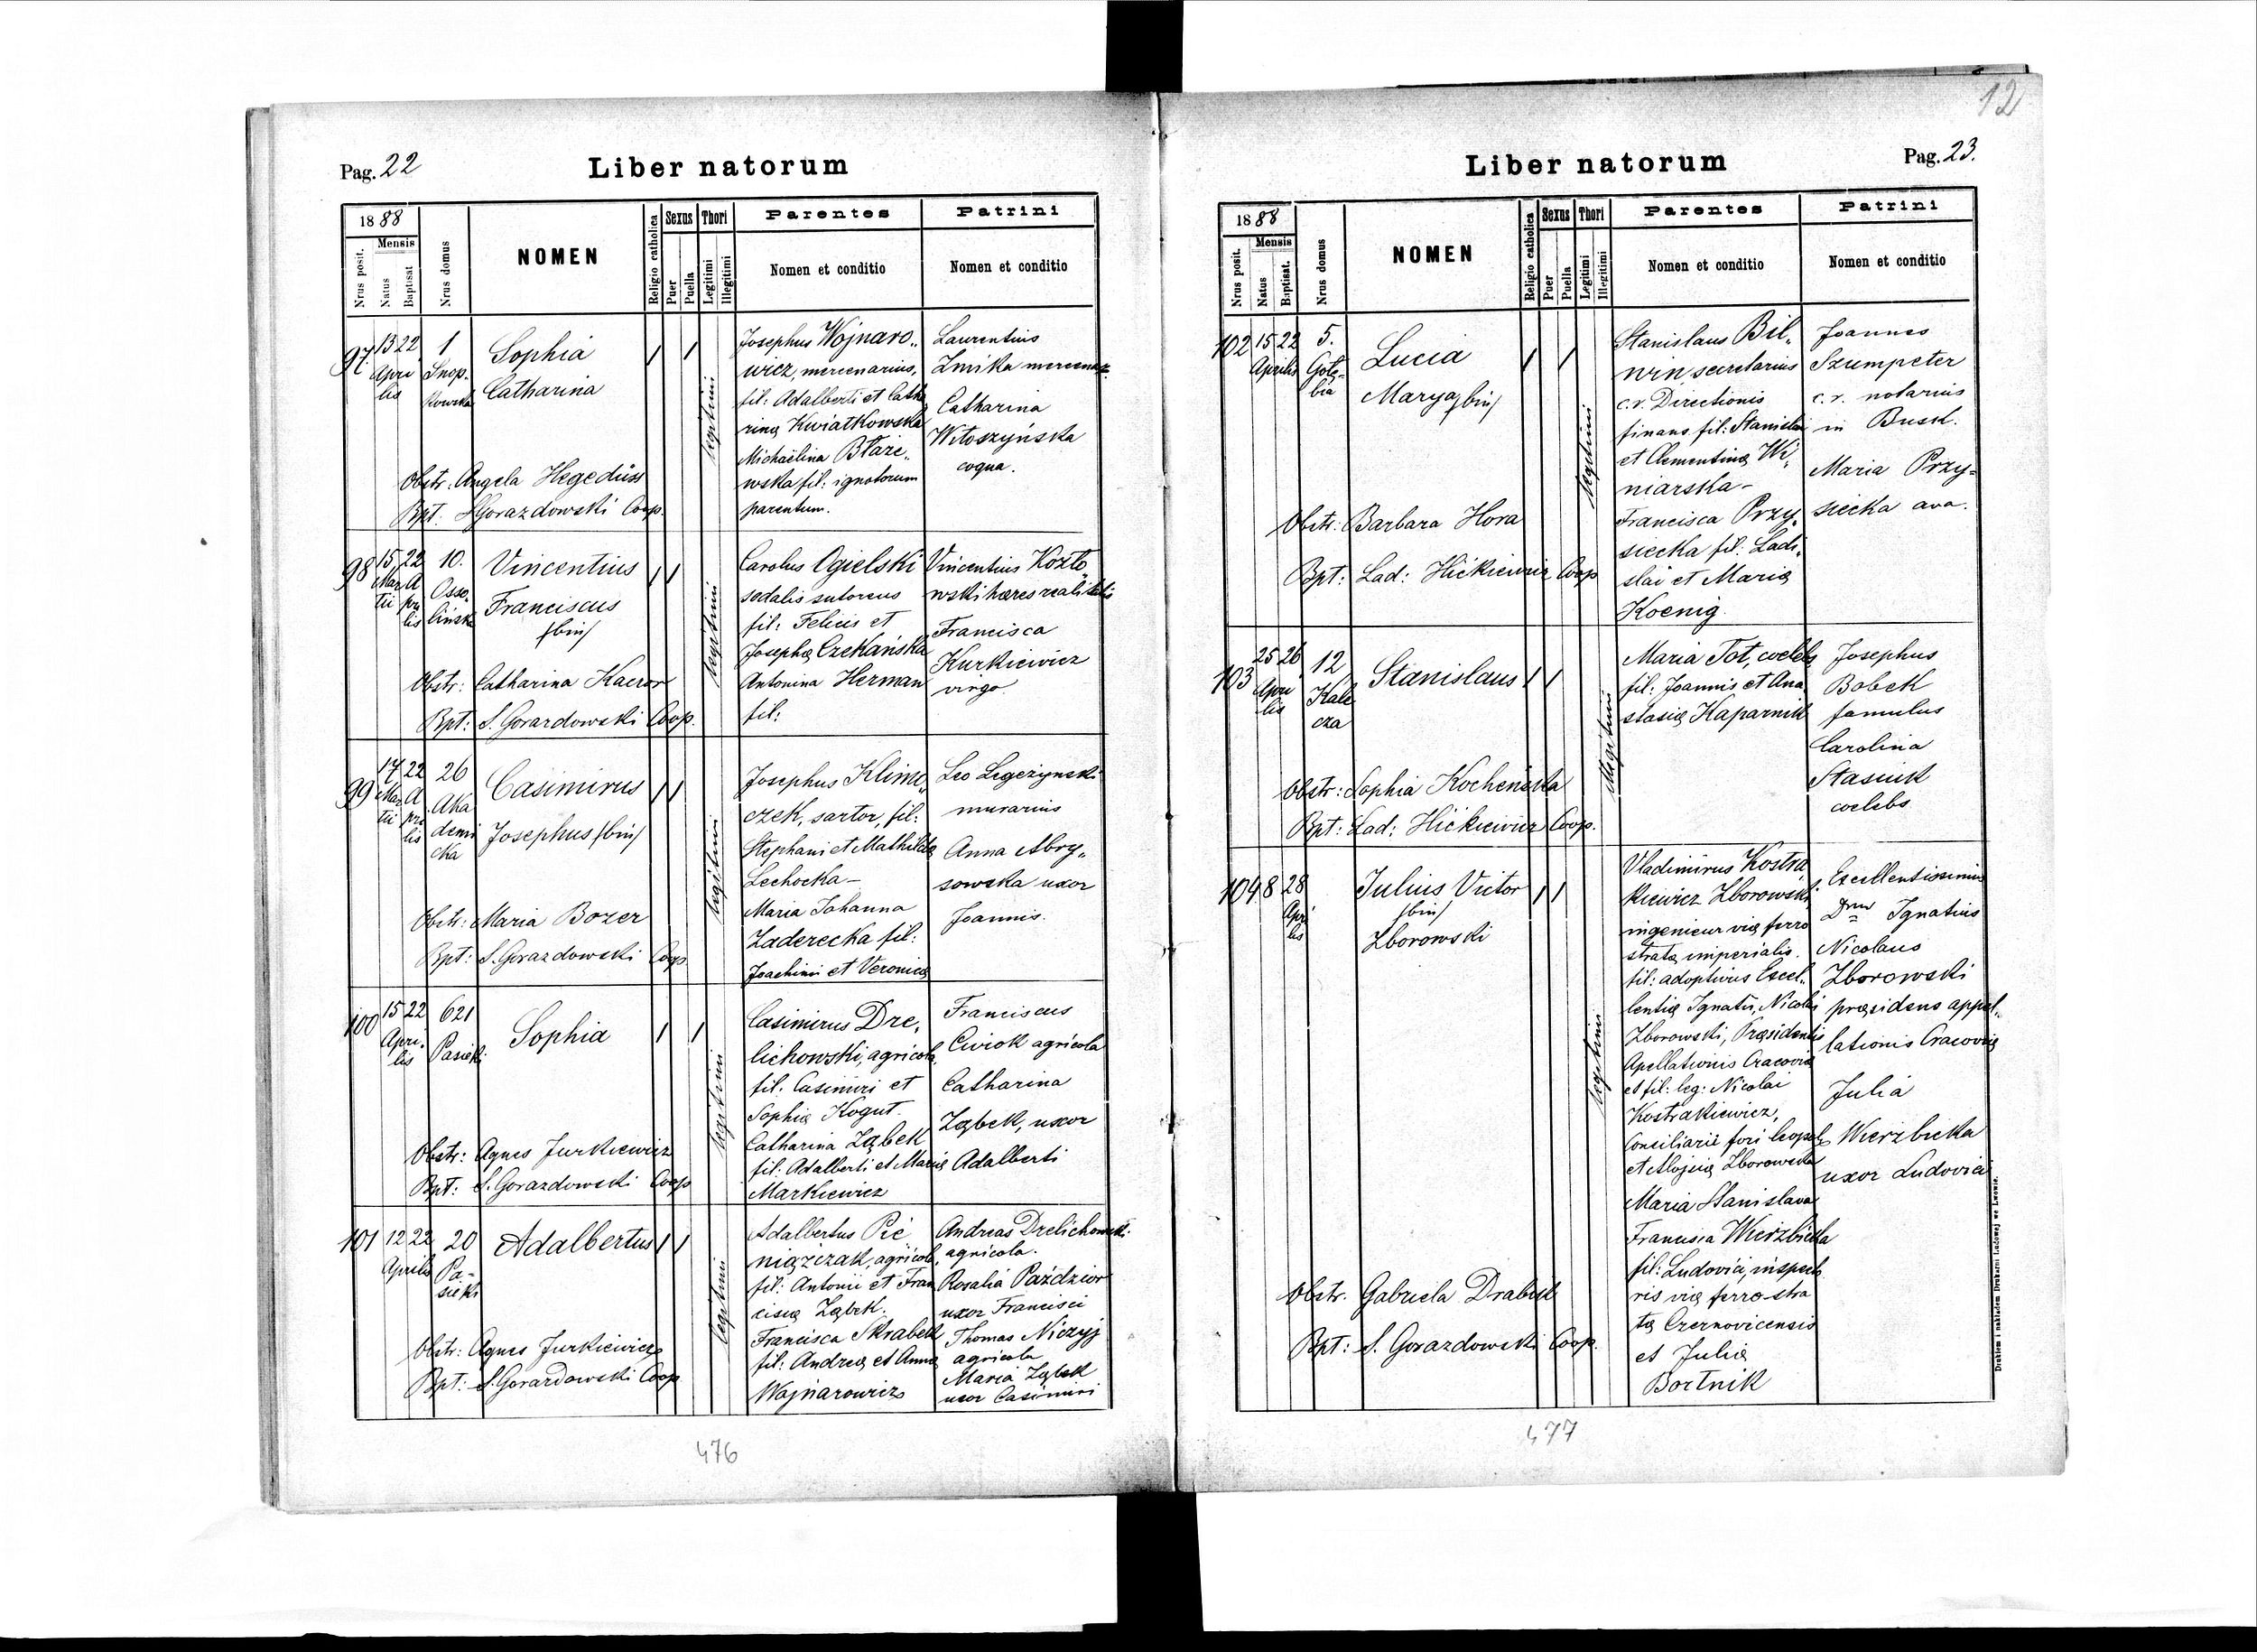 Pag. 22
Liber natorum
1888
Nrus posit.
Mensis
Natus
Baptisat
Nrus domus
NOMEN
Religio catholica
Sexus
Puer
Puella
Thori
Legitimi
Illegitimi
Parentes
Nomen et conditio
Patrini
Nomen et conditio
97
13 22
Apri
lis
1
Snop.
kowska
Sophia
Catharina
Obstr: Angela Hegedüss
Bpt: S Gorazdowski Coop.
legitimi
Josephus Wojnaro„
wicz, mercenarius,
fil: Adalberti et Catha
rinę Kwiatkowska
Michaëlina Błaże„
wska fil: ignotorum
parentum.
Laurentius
Żmika mercenar.
Catharina
Witoszyńska
coqua.
98
15 22
Mar A
tii pri
lis
10.
Osso„
lińsk
Vincentius
Franciscus
/bin/
Obstr: Catharina Kacror
Bpt: S. Gorazdowski Coop.
legitimi
Carolus Ogielski
sodalis sutoreus
fil: Felicis et
Josephę Czekańska
Antonina Herman
fil:
Vincentius Kozło
wski hæres realitatis
Francisca
Kurkiewicz
virgo.
99
17 22
Mar A
tii pri
lis
26
Aka
demi
cka
Casimirus
Josephus /bin/
Obstr: Maria Bozer
Bpt: S. Gorazdowski Coop
legitimi
Josephus Klime„
czek, sartor, fil:
Stephani et Mathildę
Lechocka –
Maria Johanna
Zaderecka fil:
Joachimi et Veronicę
Leo Legeżynski
murarius
Anna Abry„
sowska uxor
Joannis.
100
15 22
Apri.
lis
621
Pasieki
Sophia
Obstr: Agnes Jurkiewicz
Bpt: S. Gorazdowski Coop
legitimi
Casimirus Dre„
lichowski, agricola
fil: Casimiri et
Sophię Kogut.
Catharina Ząbek
fil: Adalberti et Marię
Markiewicz
Franciscus
Cwiok agricola
Catharina
Ząbek, uxor
Adalberti
101
12 22
Aprilis
20
Pa-
sieki
Adalbertus
Obstr: Agnes Jurkiewicz
Bpt: S. Gorazdowski Coop
legitimi
Adalbertus Pie
niążczak, agricola,
fil: Antonii et Fran
ciscę Ząbek.
Francisca Skrabek
fil: Andreę et Annę
Wojnarowicz
Andreas Drelichowski
agricola.
Rosalia Paździor
uxor Francisci
Thomas Niczyj
agricola
Maria Ząbek
uxor Casimiri
476
12
Liber natorum
Pag. 23.
1888
Nrus posit.
Mensis
Natus
Baptisat.
Nrus domus
NOMEN
Religio catholica
Sexus
Puer
Puella
Thori
Legitimi
Illegitimi
Parentes
Nomen et conditio
Patrini
Nomen et conditio
102
15 22
Aprilis
5.
Gołę-
bia
Lucia
Marya /bin/
Obstr: Barbara Hora
Bpt: Lad: Hićkiewicz Coop
legitimi
Stanislaus Bil„
win secretarius
c.r. Directionis
finans. fil: Stanislai
et Clementinę Wi„
niarska –
Francisca Przy„
siecka fil: Ladi„
slai et Marię
Koenig.
Joannes
Szumpeter
c. r. notarius
in Busk.
Maria Przy-
siecka ava.
103
25 26
Apri
lis
12
Kale
cza
Stanislaus
Obstr: Sophia Kocheńska
Bpt: Lad: Hićkiewicz Coop.
illegitimi
Maria Tot, coelebs
fil: Joannis et Ana
stasię Kaparnik
Josephus
Bobek
famulus
Carolina
Stasiuk
coelebs
104
8 28
Apri
lis
Julius Victor
/bin/
Zborowski
Obstr. Gabriela Drabik
Bpt: S. Gorazdowski Coop.
legitimi
Vladimirus Kostra
kiewicz Zborowski,
ingenieur vię ferro
stratę imperialis.
fil: adoptivus Excel„
lentię Ignatii, Nicolai
Zborowski, Pręsidentis
Apellationis Cracovię
et fil: leg: Nicolai
Kostrakiewicz,
Consiliarii fori leopol:
et Aloisię Zborowska
Maria Stanislava
Francisca Wierzbicka
fil: Ludovici, inspecto
ris vię ferro-stra
tę Czernovicensis
et Julię
Bortnik
Excellentissimus
Drus Ignatius
Nicolaus
Zborowski
pręsidens appel„
lationis Cracovię
Julia
Wierzbicka
uxor Ludovici
Drukiem i nakładem Drukarni Ludowej we Lwowie.
477